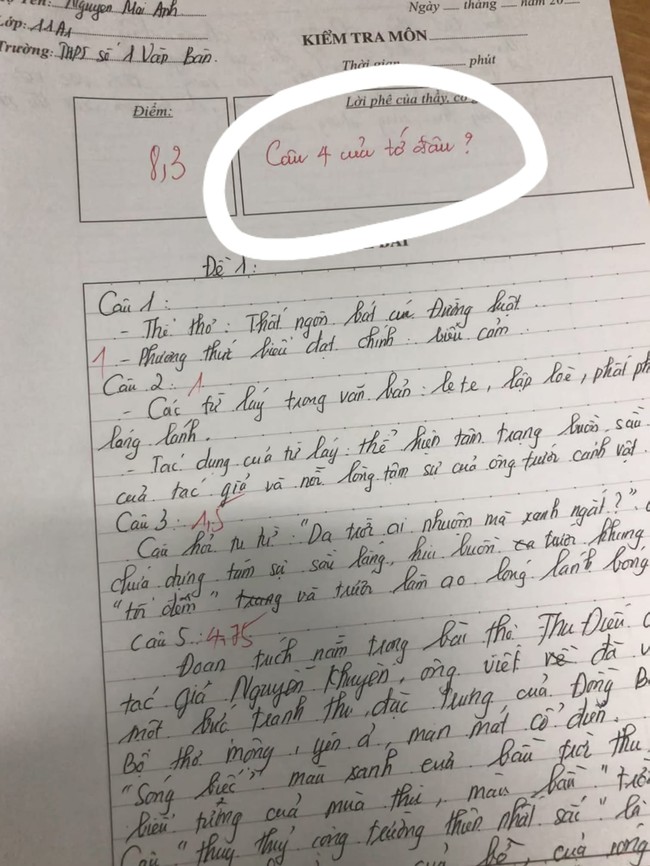 Tên: Nguyen Mai Anh
Ngày ... tháng ... năm 20
Lớp: 11A1
KIỂM TRA MÔN
Trường: THPT số 1 Văn Bàn.
Thời gian phút
Điểm:
Lời phê của thầy, cô
8,3
Câu 4 của tớ đâu ?
BÀI
Đề 1:
Câu 1:
- Thể thơ: Thất ngôn bát cú Đường luật
1 - Phương thức biểu đạt chính: biểu cảm
Câu 2: 1
- Các từ láy trong văn bản: le te, lập loè, phất ph
lóng lánh.
- Tác dụng của từ láy: thể hiện tâm trạng buồn, sầu
của tác giả và nỗi lòng tâm sự của ông trước cảnh vật.
Câu 3: 1,5
Câu hỏi tu từ: "Da trời ai nhuộm mà xanh ngắt?"
chứa đựng tâm sự sâu lắng, hiu buồn trước khung
"tối đêm" và trước làn ao lóng lánh bóng
Câu 5: 4,75
Đoạn trích nằm trong bài thơ Thu Điếu
tác giả Nguyễn Khuyến, ông viết về đã v
một bức tranh thu, đặc trưng của Đồng B
Bộ thơ mộng, yên ả, man mát cổ điển.
"Sóng biếc" màu xanh của bầu trời thu
biểu tượng của mùa thu, màu bầu "trời
Câu "thuỷ cộng trường thiên nhất sắc" là
của